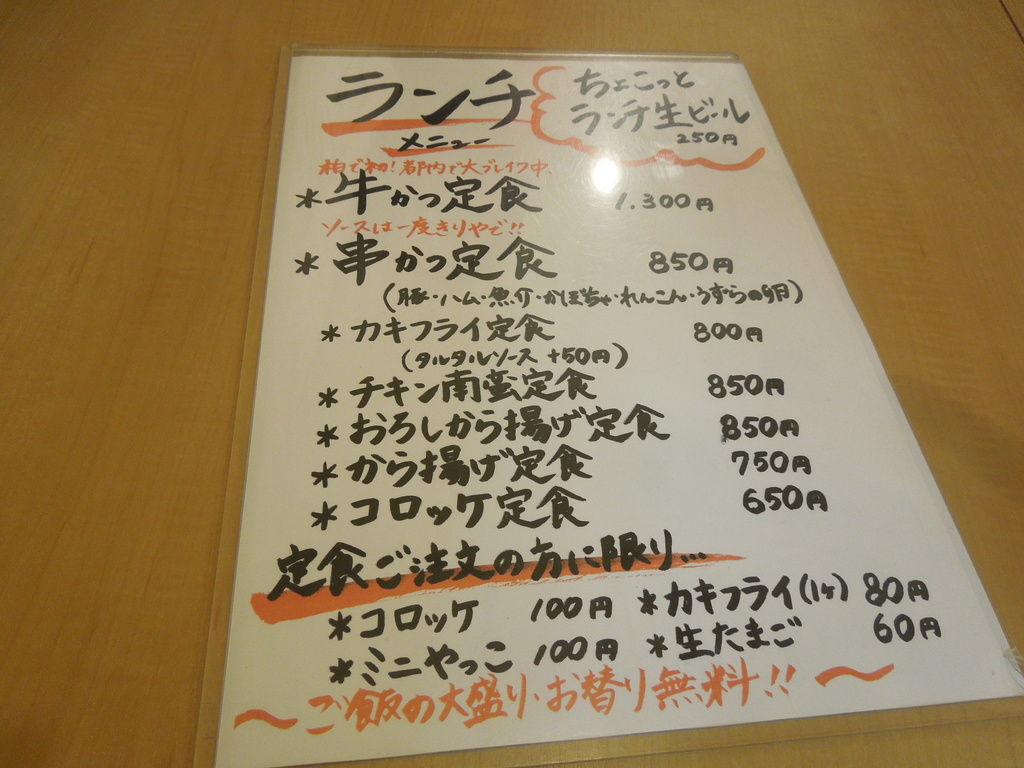 ランチ
メニュー
ちょこっと
ランチ生ビール
250円
柏で初!都内で大ブレイク中、
*牛かつ定食 1,300円
ソースは一度きりやで!!
*串かつ定食 850円
(豚・ハム・魚介・かぼちゃ・れんこん・うずらの卵)
*カキフライ定食 800円
(タルタルソース +50円)
*チキン南蛮定食 850円
*おろしから揚げ定食 850円
*から揚げ定食 750円
*コロッケ定食 650円
定食ご注文の方に限り...
*コロッケ 100円 *カキフライ(1ヶ) 80円
*ミニやっこ 100円 *生たまご 60円
~ご飯の大盛り・お替り無料!!~